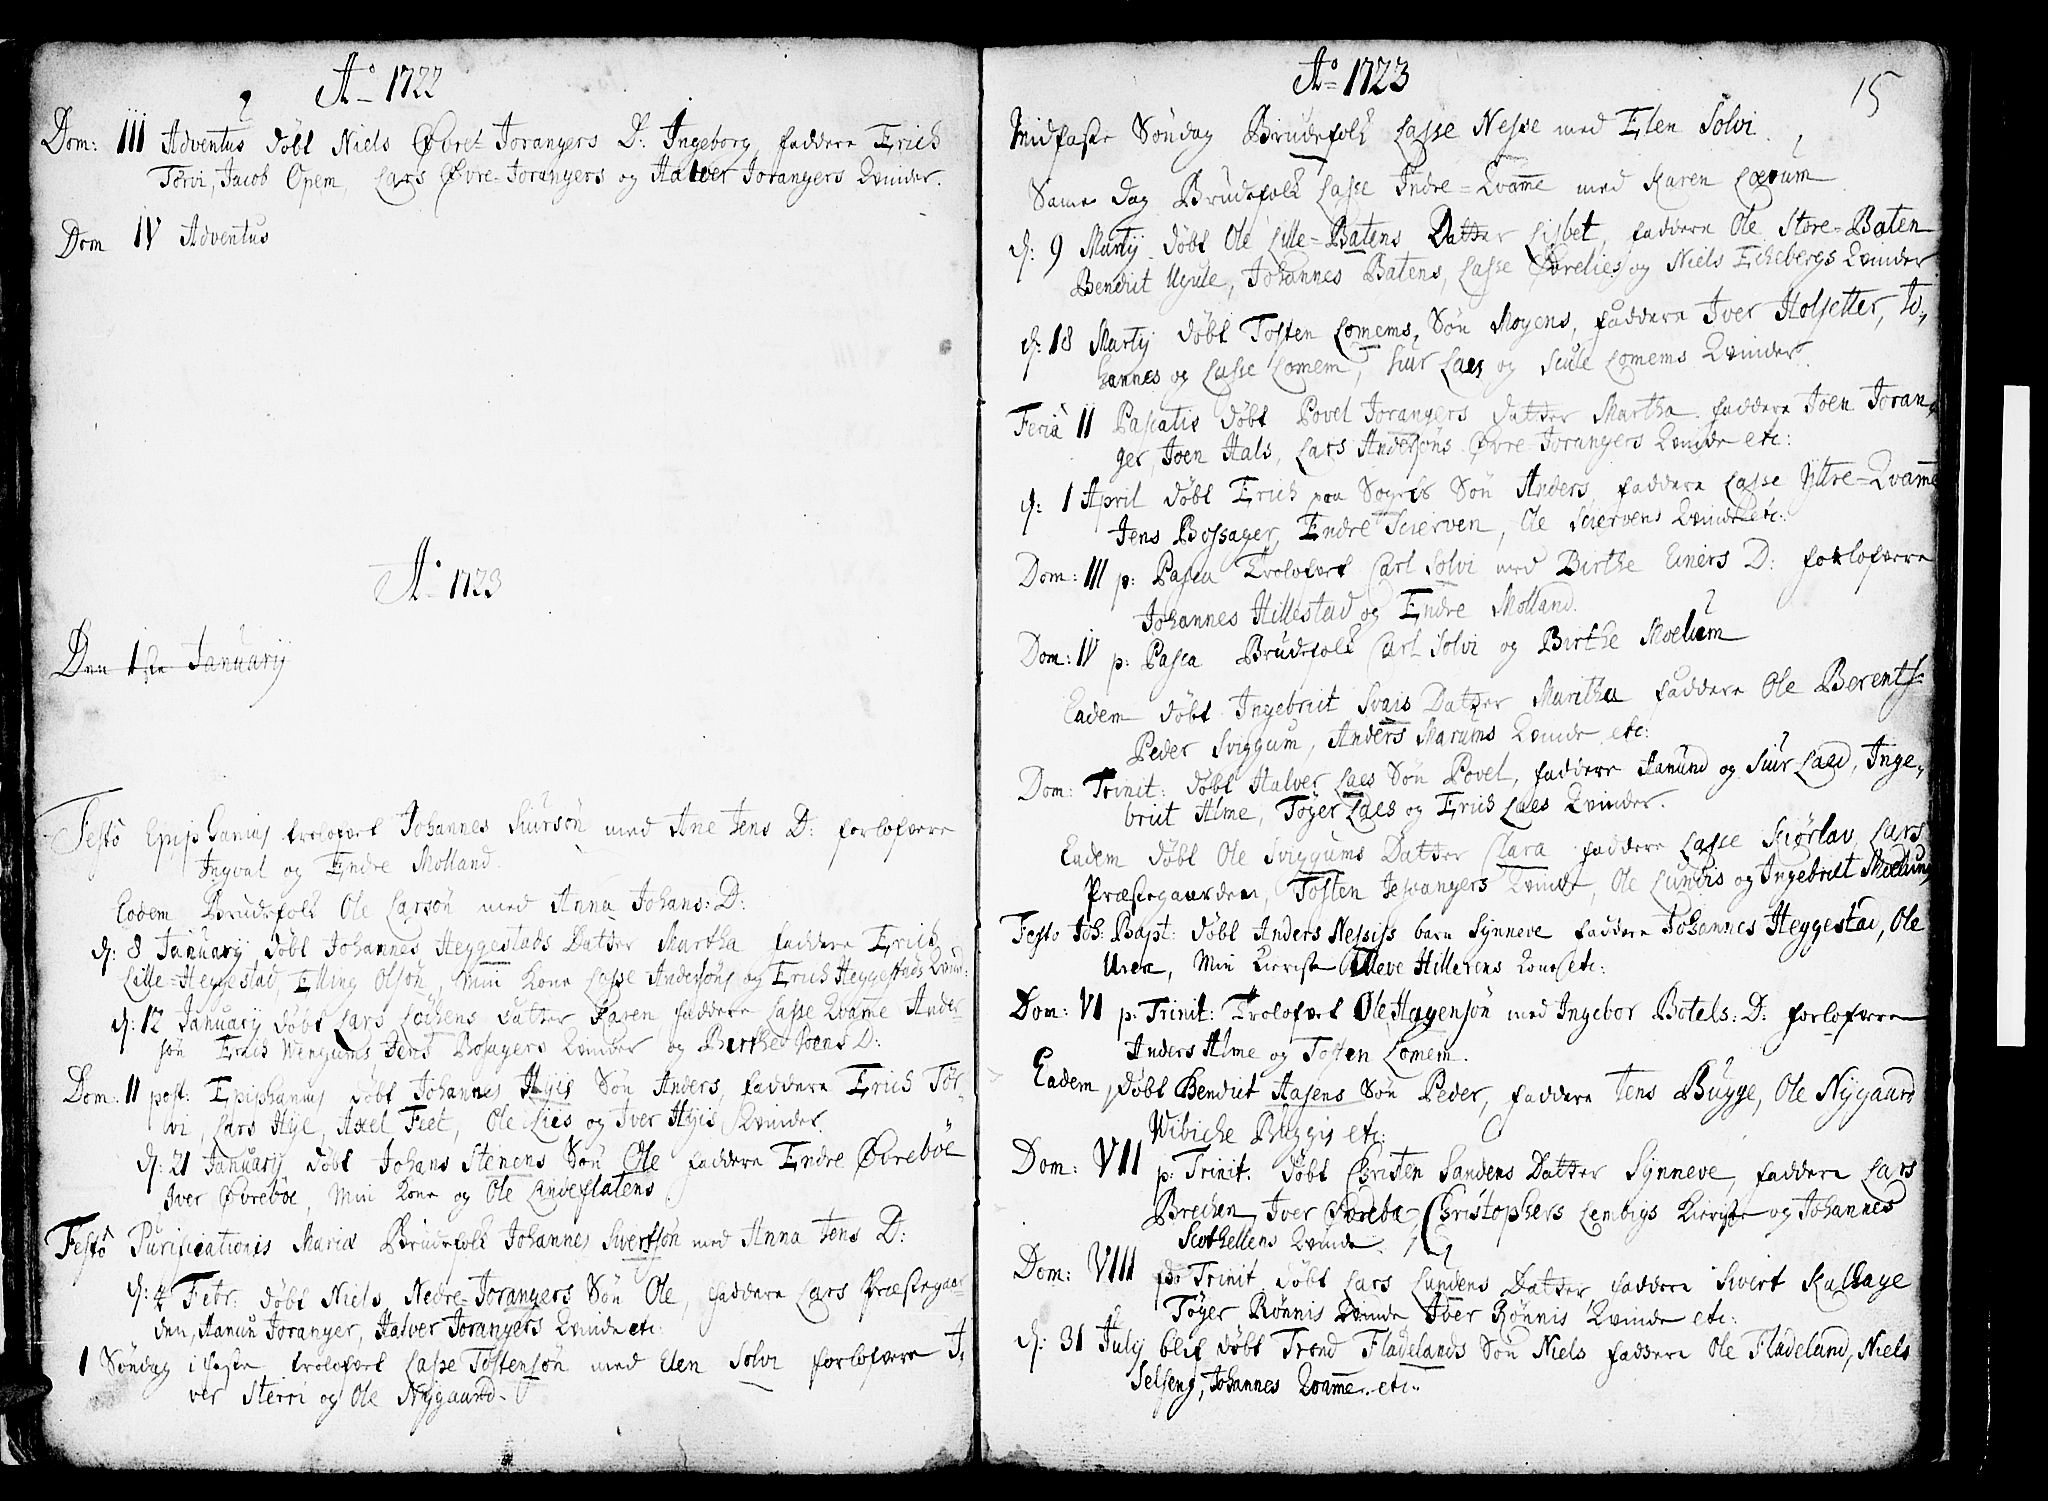 Ao 1722
Dom: III Adventus döbt Niels Øvret Jorangers D: Ingeborg, faddere Erich
Törvi, Jacob Opem, Lars Øvre-Jorangers og Halver Jorangers Qvinder.
Dom IV Adventus
Ao 1723
Den 1ste Januarij
Festo Epiphanias trolofvet Johannes Siursön med Ane Jens D: forlofvere
Ingval og Endre Molland.
Eodem Brudefolk Ole Larsön med Anna Johans: D:
d: 8 Januarij döbt Johannes Heggestads Datter Martha faddere Erich
Lille-Heggestad, Elling Olsön, Min Kone Lasse Andersöns og Erich Heggestads Qvin:
d: 12 Januarij döbt Lars Löchens datter Karen faddere Lasse Qvame Ander
sön Erich Wengums, Jens Bosagers Qvinder og Berthe Joens D:
Dom: II post: Epiphanias döbt Johannes Hyis Sön Anders, faddere Erich Tör-
vi, Lars Hye, Axel Feet, Ole Lies og Iver Hyis Qvinder.
d: 21 Januarij döbt Johans Stenens Sön Ole faddere Endre Øvreböe
Iver Øvreböe, Min Kone og Ole Landeflatens
Festo Purificationis Mariæ Brudefolk Johannes Sivertsön med Anna Jens D:
d: 4 Febr: döbt Niels Nedre-Jorangers Sön Ole, faddere Lars Præstegaar
den, Hamun Joranger, Halver Jorangers Qvinde etc:
1 Söndag i faste trolofvet Lasse Tostensön med Elen Solvi forlofvere I,
ver Sterri og Ole Nygaard.
Ao 1723
15
Midfaste Söndag Brudefolk Lasse Nesse med Elen Solvi
Same dag Brudefolk Lasse Indre=Qvame med Karen Lærum
d: 9 Martij döbt Ole Lille-Batens Datter Lisbet, faddere Ole Store-Baten
Bendict Ugule, Johannes Batens, Lasse Øvrelies og Niels Echebergs Qvinder
d: 18 Martij döbt Tosten Lomems Sön Mogens, faddere Iver Holsetter, Jo,
hannes og Lasse Lomem, Siur Laes og Scule Lomems Qvinder.
Feria II Pascatis döbt Povel Jorangers datter Martha faddere Joen Joran,
ger, Joen Hals, Lars Andersöns Øvre-Jorangers Qvinde etc:
d: 1 April döbt Erich paa Sognes Sön Anders, faddere Lasse Yttre-Qvame
Jens Bossager, Endre Scierven, Ole Sciervens Qvinde etc:
Dom: III p: Pasca Trolofvet Carl Solvi med Birthe Einers D: forlofvere
Johannes Hillestad og Endre Molland.
Dom: IV p: Pasca Brudefolk Carl Solvi og Birthe Moelum
Eadem döbt Ingebrict Svais Datter Maritha faddere Ole Berents:
Peder Sviggum, Anders Marums Qvinde etc:
Dom: Trinit: döbt Halver Laes Sön Povel, faddere Hanund og Siur Laes, Inge,
brict Alme, Töger Laes og Erich Laes Qvinder.
Eadem döbt Ole Sviggums Datter Clara faddere Lasse Sciörlav, Lars
Præstegaarden, Tosten Jesvangers Qvinde, Ole Lundis og Ingebrict Moelums
Festo Joh: Bapt: döbt Anders Nessiss barn Synneve faddere Johannes Heggestad, Ole
Uren, Min Kieriste Elleve Hillerens Kone etc:
Dom: VI p: Trinit: Trolofvet Ole Hagensön med Ingebor Botels: D: forlofvere
Anders Alme og Tosten Lomem.
Eadem döbt Bendict Hasens Sön Peder, faddere Jens Bugge, Ole Nygaard
Wibiche Buggis etc:
Dom: VII p: Trinit. döbt Christen Sandens Datter Synneve, faddere Lars
Brechen, Iver Øvrebö, Christophers Lembigs Kieriste og Johannes
Scothellens Qvinde.
Dom: VIII p: Trinit döbt Lars Lundens Datter faddere Sivert Kalhage
Töger Rönnis Qvinde Iver Rönnis Qvinde etc:
d: 31 July blef döbt Trond Fladelands Sön Niels faddere Ole Fladeland, Niels
Selseng, Johannes Qvame. etc: